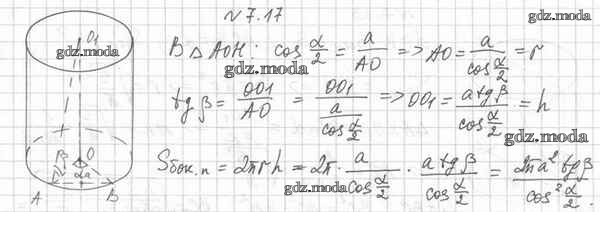 №7.17
gdz.moda
O₁
gdz.moda
В △ AOH: cos α/2 = a/AO => AO = a/(cos α/2) = r
gdz.moda
tg β = OO1/AO = OO1/(a/(cos α/2)) => OO1 = (a tg β)/(cos α/2) = h
gdz.moda
β O
α a
A B
Sбок.п = 2πrh = 2π · a/(cos α/2) · (a tg β)/(cos α/2) = (2πa² tg β)/(cos² α/2).
gdz.moda
gdz.moda